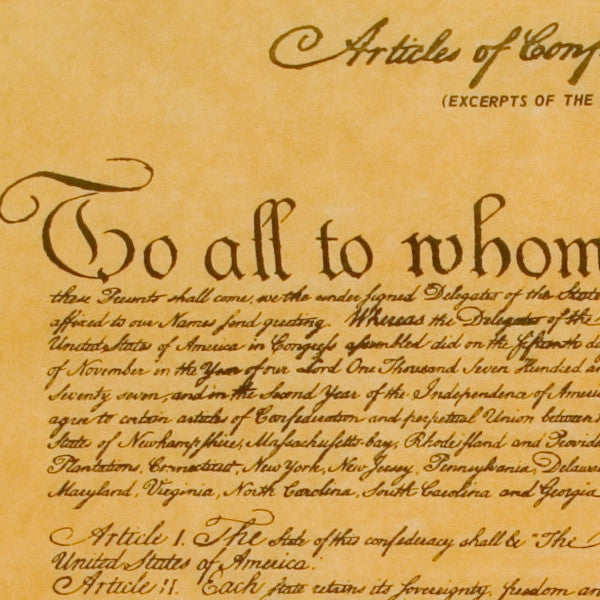 Articles of Conf
(EXCERPTS OF THE
To all to whom
these Presents shall come, we the under signed Delegates of the State
affixed to our Names send greeting. Whereas the Delegates of the
United States of America in Congress assembled did on the fifteenth d
of November in the Year of our Lord One Thousand Seven Hundred an
Seventy seven, and in the Second Year of the Independence of Americ
agree to certain articles of Confederation and perpetual Union between
States of Newhampshire, Massachusetts-bay, Rhodeisland and Provide
Plantations, Connecticut, New York, New Jersey, Pennsylvania, Delawa
Maryland, Virginia, North Carolina, South Carolina and Georgia
Article I. The Stile of this confederacy shall be "The
United States of America.
Article II. Each state retains its Sovereignty, freedom an